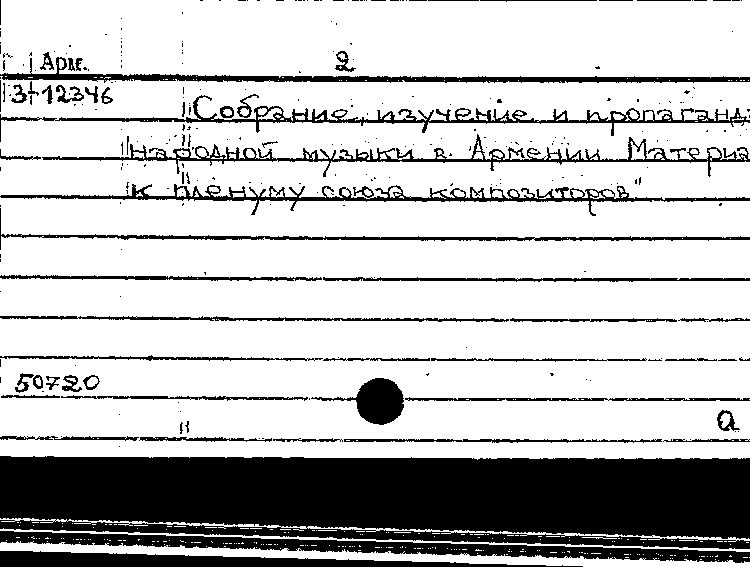 Арм. 2
3-12346
Собрание, изучение и пропаганд
народной музыки в Армении Материа
к пленуму союза композиторов"
50720
а